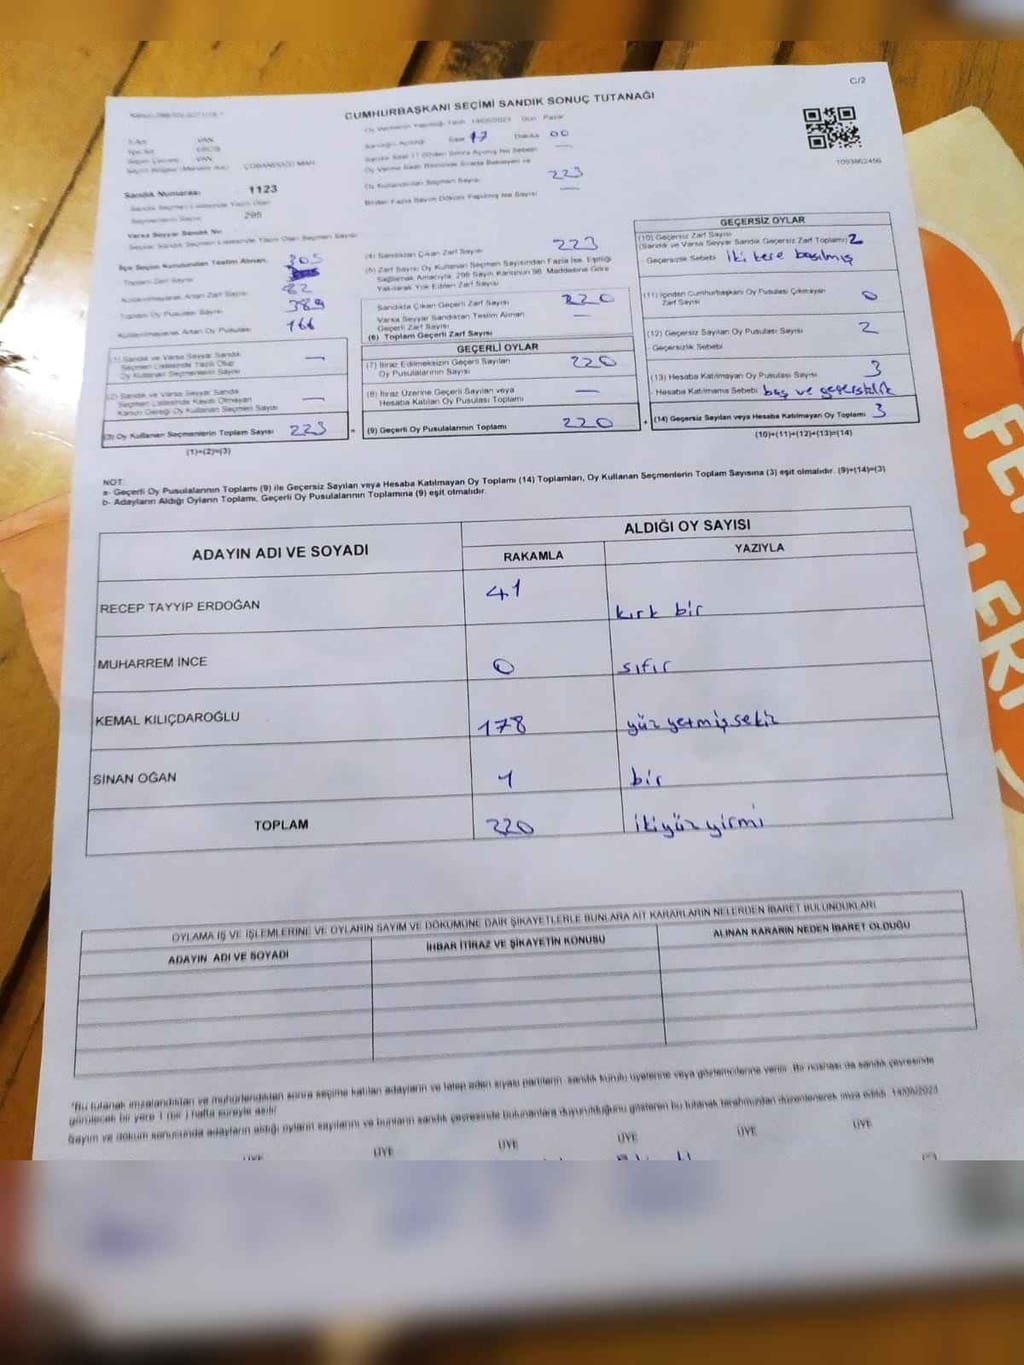 C/2
CUMHURBAŞKANI SEÇİMİ SANDIK SONUÇ TUTANAĞI
Oy Vermenin Yapıldığı Tarih 14/05/2023 Gün Pazar
Sandığın Açıldığı Saat 17 Dakika 00
Oy Kullandırılan Seçmen Sayısı 223
Birden Fazla Sayım Döküm Yapılmış İse Sayısı —
VAN
VAN
1093862456
Sandık Numarası 1123
Sandık Seçmen Listesinde Yazılı Olan
Seçmenlerin Sayısı 295
Varsa Seyyar Sandık No
Seyyar Sandık Seçmen Listesinde Yazılı Olan Seçmen Sayısı
İlçe Seçim Kurulundan Teslim Alınan 305
Toplam Zarf Sayısı
Kullanılmayarak Artan Zarf Sayısı 82
Toplam Oy Pusulası Sayısı 389
Kullanılmayarak Artan Oy Pusulası 166
(1) Sandık ve Varsa Seyyar Sandık
Seçmen Listesinde Yazılı Olup
Oy Kullanan Seçmenlerin Sayısı —
(2) Sandık ve Varsa Seyyar Sandık
Seçmen Listesinde Kayıtlı Olmayan
Kanun Gereği Oy Kullanan Seçmen Sayısı —
(3) Oy Kullanan Seçmenlerin Toplam Sayısı 223
(1)+(2)=(3)
(4) Sandıktan Çıkan Zarf Sayısı 223
(5) Zarf Sayısı Oy Kullanan Seçmen Sayısından Fazla İse, Eşitliği
Sağlamak Amacıyla, 298 Sayılı Kanunun 98. Maddesine Göre
Yakılarak Yok Edilen Zarf Sayısı
Sandıkta Çıkan Geçerli Zarf Sayısı 220
Varsa Seyyar Sandıktan Teslim Alınan
Geçerli Zarf Sayısı —
(6) Toplam Geçerli Zarf Sayısı
GEÇERLİ OYLAR
(7) İtiraz Edilmeksizin Geçerli Sayılan
Oy Pusulalarının Sayısı 220
(8) İtiraz Üzerine Geçerli Sayılan veya
Hesaba Katılan Oy Pusulası Toplamı —
= (9) Geçerli Oy Pusulalarının Toplamı 220
GEÇERSİZ OYLAR
(10) Geçersiz Zarf Sayısı
(Sandık ve Varsa Seyyar Sandık Geçersiz Zarf Toplamı) 2
Geçersizlik Sebebi iki kere basılmış
(11) İçinden Cumhurbaşkanı Oy Pusulası Çıkmayan
Zarf Sayısı 0
(12) Geçersiz Sayılan Oy Pusulası Sayısı 2
Geçersizlik Sebebi
(13) Hesaba Katılmayan Oy Pusulası Sayısı 3
Hesaba Katılmama Sebebi boş ve geçersizlik
+ (14) Geçersiz Sayılan veya Hesaba Katılmayan Oy Toplamı 3
(10)+(11)+(12)+(13)=(14)
NOT
a- Geçerli Oy Pusulalarının Toplamı (9) ile Geçersiz Sayılan veya Hesaba Katılmayan Oy Toplamı (14) Toplamları, Oy Kullanan Seçmenlerin Toplam Sayısına (3) eşit olmalıdır. (9)+(14)=(3)
b- Adayların Aldığı Oyların Toplamı, Geçerli Oy Pusulalarının Toplamına (9) eşit olmalıdır.
ADAYIN ADI VE SOYADI ALDIĞI OY SAYISI
RAKAMLA YAZIYLA
RECEP TAYYİP ERDOĞAN 41 kırk bir
MUHARREM İNCE 0 sıfır
KEMAL KILIÇDAROĞLU 178 yüz yetmiş sekiz
SİNAN OĞAN 1 bir
TOPLAM 220 ikiyüz yirmi
OYLAMA İŞ VE İŞLEMLERİNE VE OYLARIN SAYIM VE DÖKÜMÜNE DAİR ŞİKAYETLERLE BUNLARA AİT KARARLARIN NELERDEN İBARET BULUNDUKLARI
ADAYIN ADI VE SOYADI İHBAR İTİRAZ VE ŞİKAYETİN KONUSU ALINAN KARARIN NEDEN İBARET OLDUĞU
"Bu tutanak imzalandıktan ve mühürlendikten sonra seçime katılan adayların ve talep eden siyasi partilerin sandık kurulu üyelerine veya gözlemcilerine verilir. Bir nüshası da sandık çevresinde
görülecek bir yere 1 (bir) hafta süreyle asılır
Sayım ve döküm sonucunda adayların aldığı oyların sayılarını ve bunların sandık çevresinde bulunanlara duyurulduğunu gösteren bu tutanak tarafımızdan düzenlenerek imza edildi. 14/05/2023
ÜYE ÜYE ÜYE ÜYE ÜYE ÜYE
FE
LEKİ